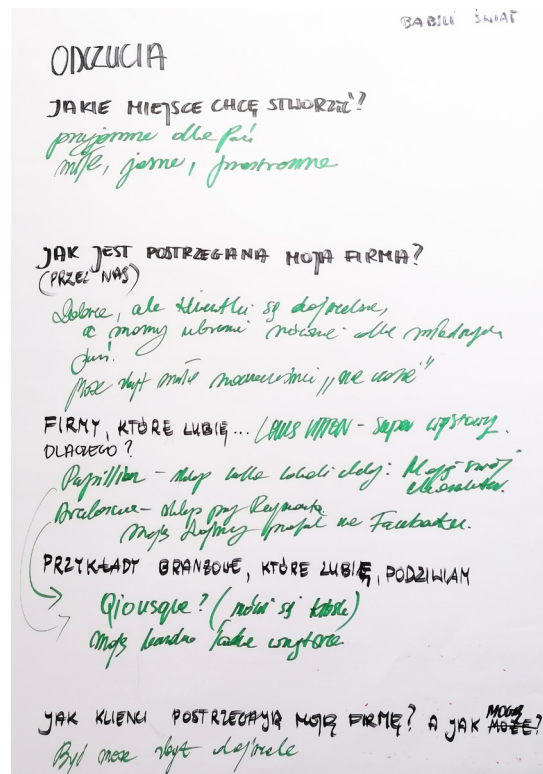 BABSKI ŚWIAT
ODCZUCIA
JAKIE MIEJSCE CHCĘ STWORZYĆ?
przyjemne dla Pań
miłe, jasne, przestronne
JAK JEST POSTRZEGANA MOJA FIRMA?
(PRZEZ NAS)
Dobrze, ale klientki są dojrzalsze,
a mamy ubrania również dla młodszych
Pań.
Może zbyt mało nowocześni „na czasie”
FIRMY, KTÓRE LUBIĘ... LOUIS VUITTON - super wystawy.
DLACZEGO?
Papillion - sklep koło
Mają swój
charakter.
sklep przy Reymonta
mają fajny profil na Facebooku.
PRZYKŁADY BRANŻOWE, KTÓRE LUBIĘ, PODZIWIAM
Qiousque? (
mają bardzo ładne wnętrze
JAK KLIENCI POSTRZEGAJĄ MOJĄ FIRMĘ? A JAK MOGĄ?
Być może zbyt dojrzale